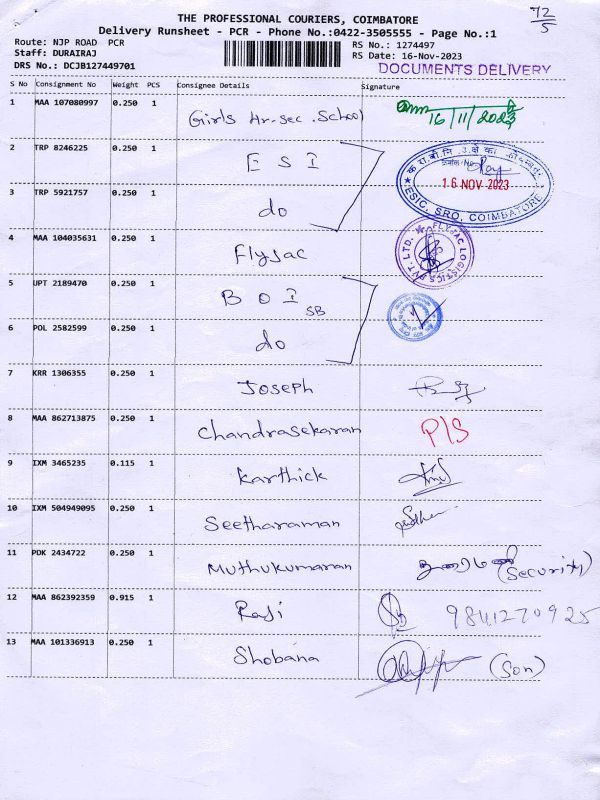 THE PROFESSIONAL COURIERS, COIMBATORE
72/5
Delivery Runsheet - PCR - Phone No.:0422-3505555 - Page No.:1
Route: NJP ROAD PCR
RS No.: 1274497
Staff: DURAIRAJ
RS Date: 16-Nov-2023
DRS No.: DCJB127449701
DOCUMENTS DELIVERY
S No Consignment No Weight PCS Consignee Details Signature
1 MAA 107080997 0.250 1 Girls Hr.sec.School 16/11/2023
2 TRP 8246225 0.250 1 E S I
16 NOV 2023
ESIC, SRO, COIMBATORE
3 TRP 5921757 0.250 1 do
4 MAA 104035631 0.250 1 Flyjac
FLYJAC LOGISTICS PVT. LTD.
5 UPT 2189470 0.250 1 B O I SB
6 POL 2582599 0.250 1 do
7 KRR 1306355 0.250 1 Joseph
8 MAA 862713875 0.250 1 Chandrasekaran P/S
9 IXM 3465235 0.115 1 Karthick
10 IXM 504949095 0.250 1 Seetharaman
11 PDK 2434722 0.250 1 Muthukumaran (Security)
12 MAA 862392359 0.915 1 Raji 9841270925
13 MAA 101336913 0.250 1 Shobana (Son)